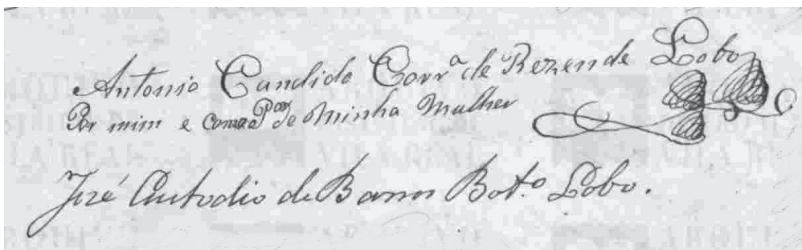 Antonio Candido Corr.ª de Rezende Lobo
Por mim e como P.ᵒʳ de Minha Mulher
José Custodio de Barros Bot.º Lobo.